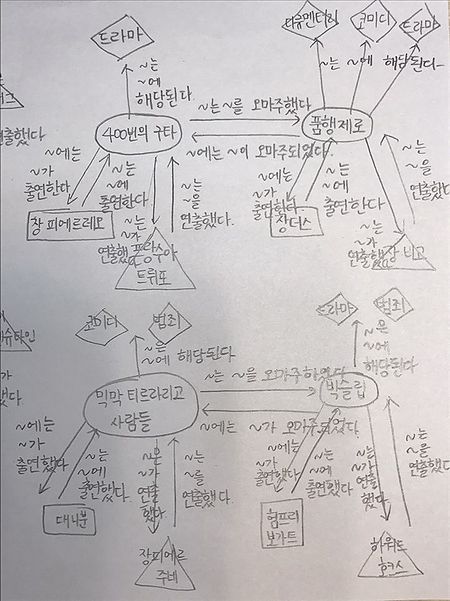 드라마
다큐멘터리
코미디
드라마
~는
~에
해당된다.
~는 ~에 해당된다
연출했다
~는 ~를 오마주했다
400번의 구타
품행제로
~에는 ~이 오마주되었다.
~에는
~가
출연한다
~는
~에
출연한다.
~는
~을
연출했다.
~에는
~가
출연했다
~는
~에
출연한다
~는
~을
연출했다.
장 피에르레오
~는
~가
연출했
프랑수아
트뤼포
장더스
~는
~가
연출했다
장 비고
코미디
범죄
드라마
범죄
슈타인
~은
~에 해당된다
~은
~에
해당된다
~는 ~을 오마주하였다
믹막 티르라리고
사람들
빅슬립
~에는 ~가 오마주되었다.
~에는
~가
출연했다
~는
~에
출연했다.
~은
~가
연출
했다
~는
~를
연출했다.
~에는
~가
출연했다
~는
~에
출연했다.
~는
~가
연출
했다
~는
~을
연출했다.
대니분
장피에르
주네
험프리
보가트
하워드
혹스